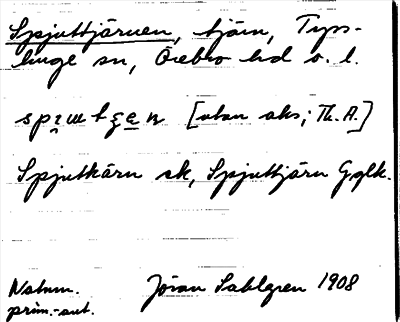 Spjuttjärnen, tjärn, Tyss-
linge sn, Örebro hd o. l.
[utan aks; Th. A.]
Spjutkärn sk, Spjuttjärn Gglk.
Natnn.
prim.-aut.
Jöran Sahlgren 1908